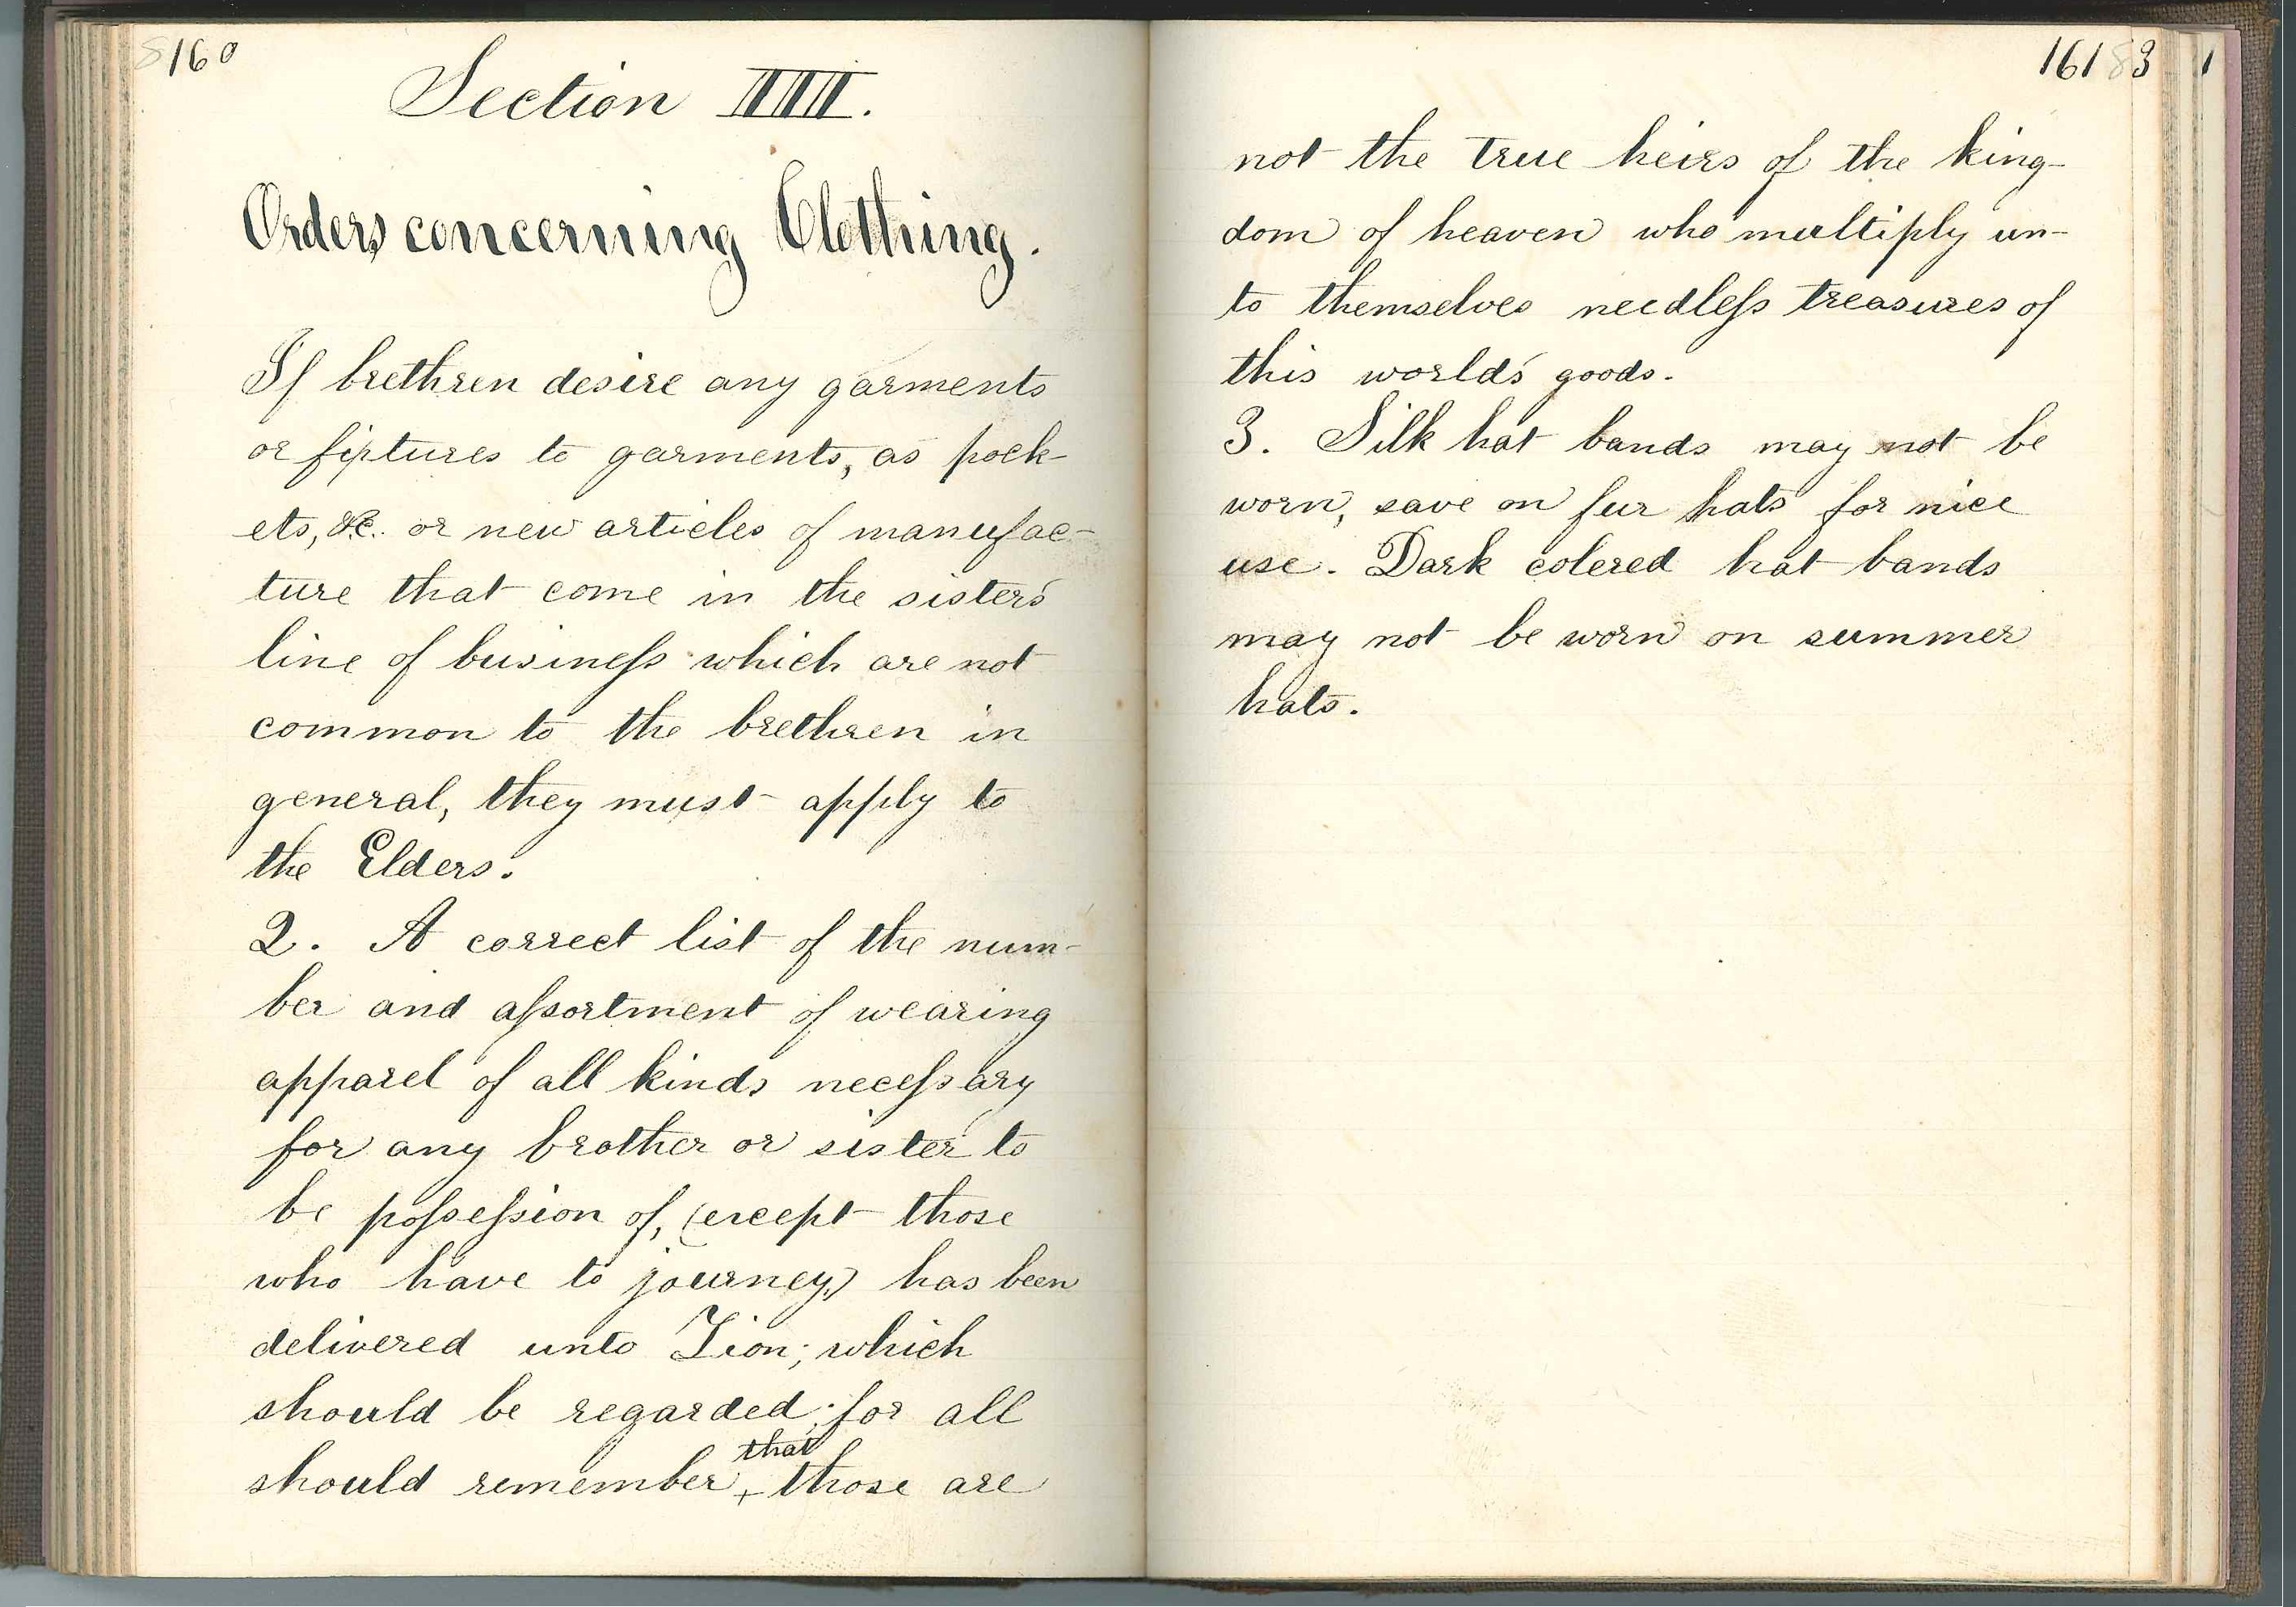 160
Section IIII.
Orders concerning Clothing.
If brethren desire any garments
or fixtures to garments, as pock-
ets, &c. or new articles of manufac-
ture that come in the sisters'
line of business which are not
common to the brethren in
general, they must apply to
the Elders.
2. A correct list of the num-
ber and assortment of wearing
apparel of all kinds necessary
for any brother or sister to
be possession of, (except those
who have to journey,) has been
delivered unto Zion; which
should be regarded; for all
that
should remember + those are
161 83 1
not the true heirs of the king-
dom of heaven who multiply un-
to themselves needless treasures of
this world's goods.
3. Silk hat bands may not be
worn, save on fur hats for nice
use. Dark colered hat bands
may not be worn on summer
hats.